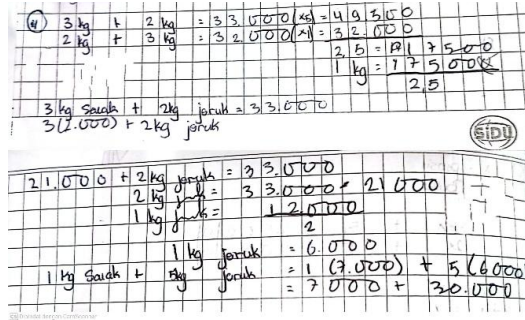 4) 3 kg + 2 kg = 33.000 (x5) = 49.500
2 kg + 3 kg = 32.000 (x1) = 32.000
2,5 = 17500
1 kg = 17500
2,5
3 kg Salak + 2kg jeruk = 33.000
3(7.000) + 2kg jeruk
SiDU
21.000 + 2kg jeruk = 33.000
2 kg jeruk = 33.000 - 21000
1 kg jeruk = 12.000
2
1 kg jeruk = 6.000
1 kg Salak + 5kg jeruk = 1 (7.000) + 5(6000
= 7000 + 30.000